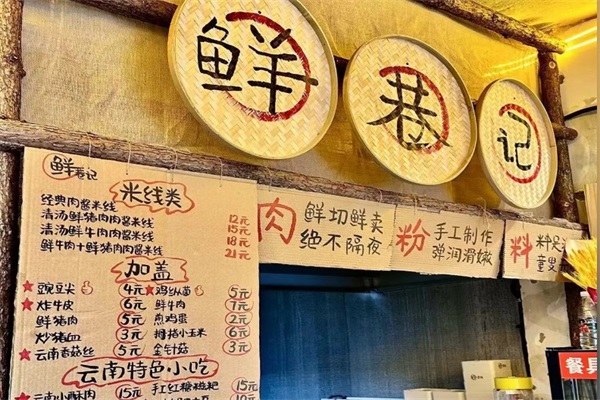 鲜巷记
鲜巷记
米线类
经典肉酱米线 12元
清汤鲜猪肉肉酱米线 15元
清汤鲜牛肉肉酱米线 18元
鲜牛肉+鲜猪肉肉酱米线 21元
加盖
豌豆米 4元 鸡枞菌 5元
炸牛皮 6元 鲜牛肉 7元
鲜猪肉 5元 煎鸡蛋 2元
炒猪血 3元 拇指小玉米 6元
云南香菇丝 5元 金针菇 3元
云南特色小吃
云南小酥肉 15元 手工红糖糍粑 15元
肉 鲜切鲜卖
绝不隔夜
粉 手工制作
弹润滑嫩
料 料足
童叟
餐具